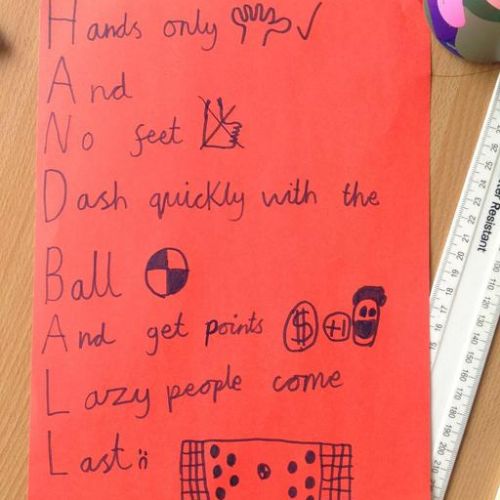 Hands only
And
No feet
Dash quickly with the
Ball
And get points $ +1
Lazy people come
Last